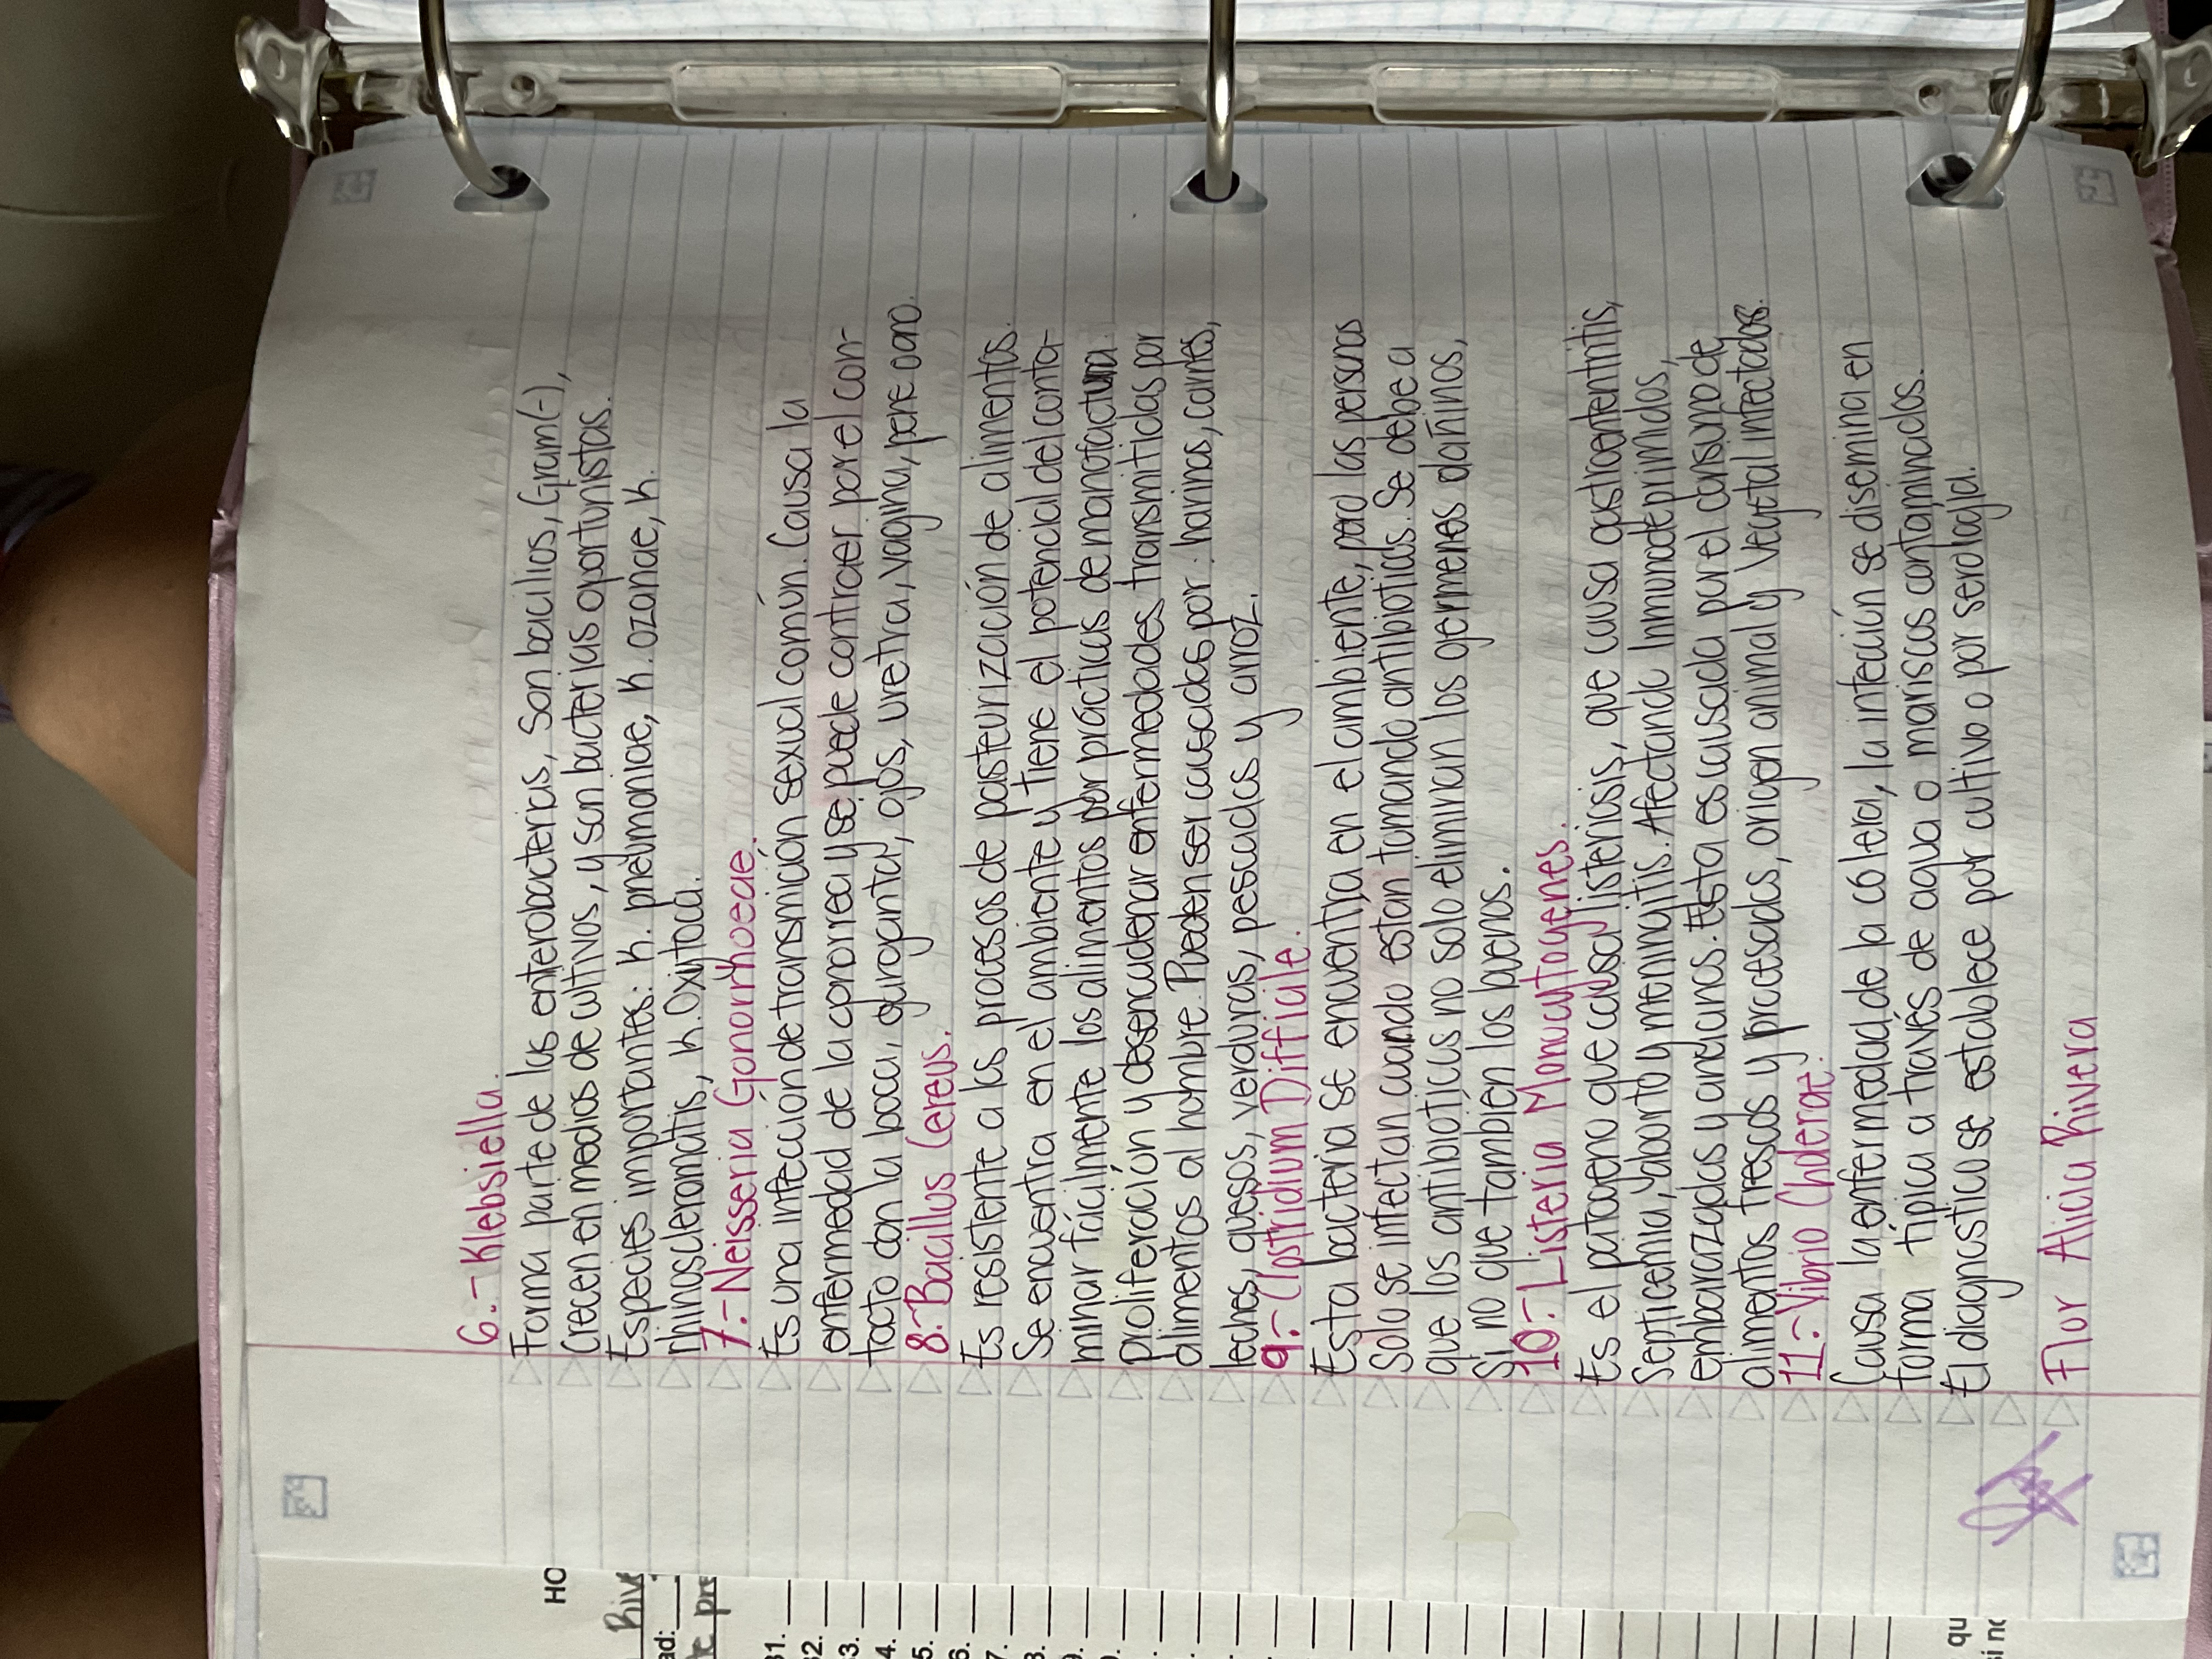 6.- Klebsiella.
Forma parte de las enterobacterias, son bacilios, Gram(-),
Crecen en medios de cultivos, y son bacterias oportunistas.
Especies importantes: K. pneumoniae, K. ozanae, K.
rhinoscleromatis, K. Oxytoca.
7.- Neisseria Gonorrhoeae.
Es una infección de transmición sexual común. Causa la
enfermedad de la gonorrea y se puede contraer por el con-
tacto con la boca, garganta, ojos, uretra, vagina, pene o ano.
8.- Bacillus Cereus.
Es resistente a los procesos de pasteurización de alimentos.
Se encuentra en el ambiente y tiene el potencial del conta-
minar fácilmente los alimentos por prácticas de manofactura
proliferación y desencadenar enfermedades transmitidas por
alimentos al hombre. Pueden ser causados por: harinas, carnes,
leches, quesos, verduras, pescados y arroz.
9.- Clostridium Difficile.
Esta bacteria se encuentra en el ambiente, pero las personas
Solo se infectan cuando estan tomando antibioticos. Se debe a
que los antibioticos no solo eliminan los germenes dañinos,
Si no que tambien los buenos.
10.- Listeria Monocytogenes.
Es el patogeno que causa listeriosis, que causa gastroentenitis,
Septicemia, aborto y meninguitis. Afectando Inmunodeprimidos,
embarazadas y ancianos. Esta es causada por el consumo de
alimentos frescos y procesados, origen animal y vegetal infectados.
11.- Vibrio Cholerae.
Causa la enfermedad de la cólera, la infeción se diseminan en
forma típica a través de agua o mariscos contaminados.
El diagnostico se establece por cultivo o por serología.
Flor Alicia Rivera
HO
Rive
ad:
31.
32.
3.
4.
5.
6.
7.
8.
9.
qu
si no